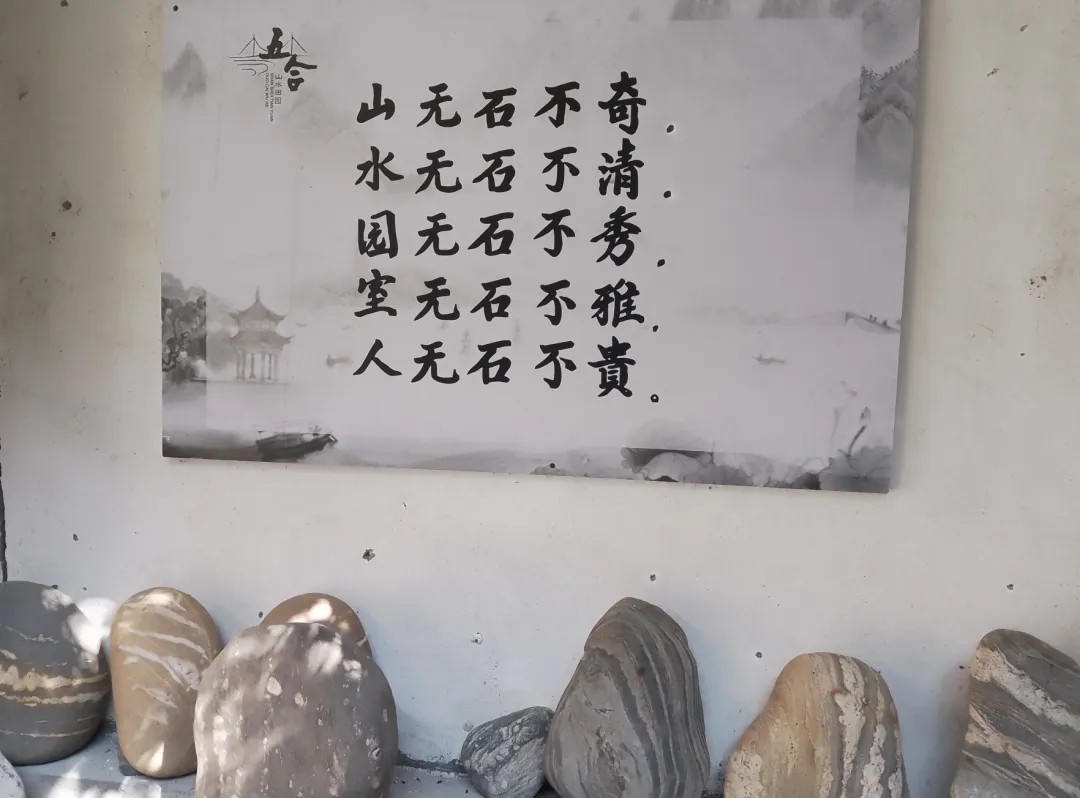 五合
山水田园
山无石不奇，
水无石不清，
园无石不秀，
室无石不雅，
人无石不貴。